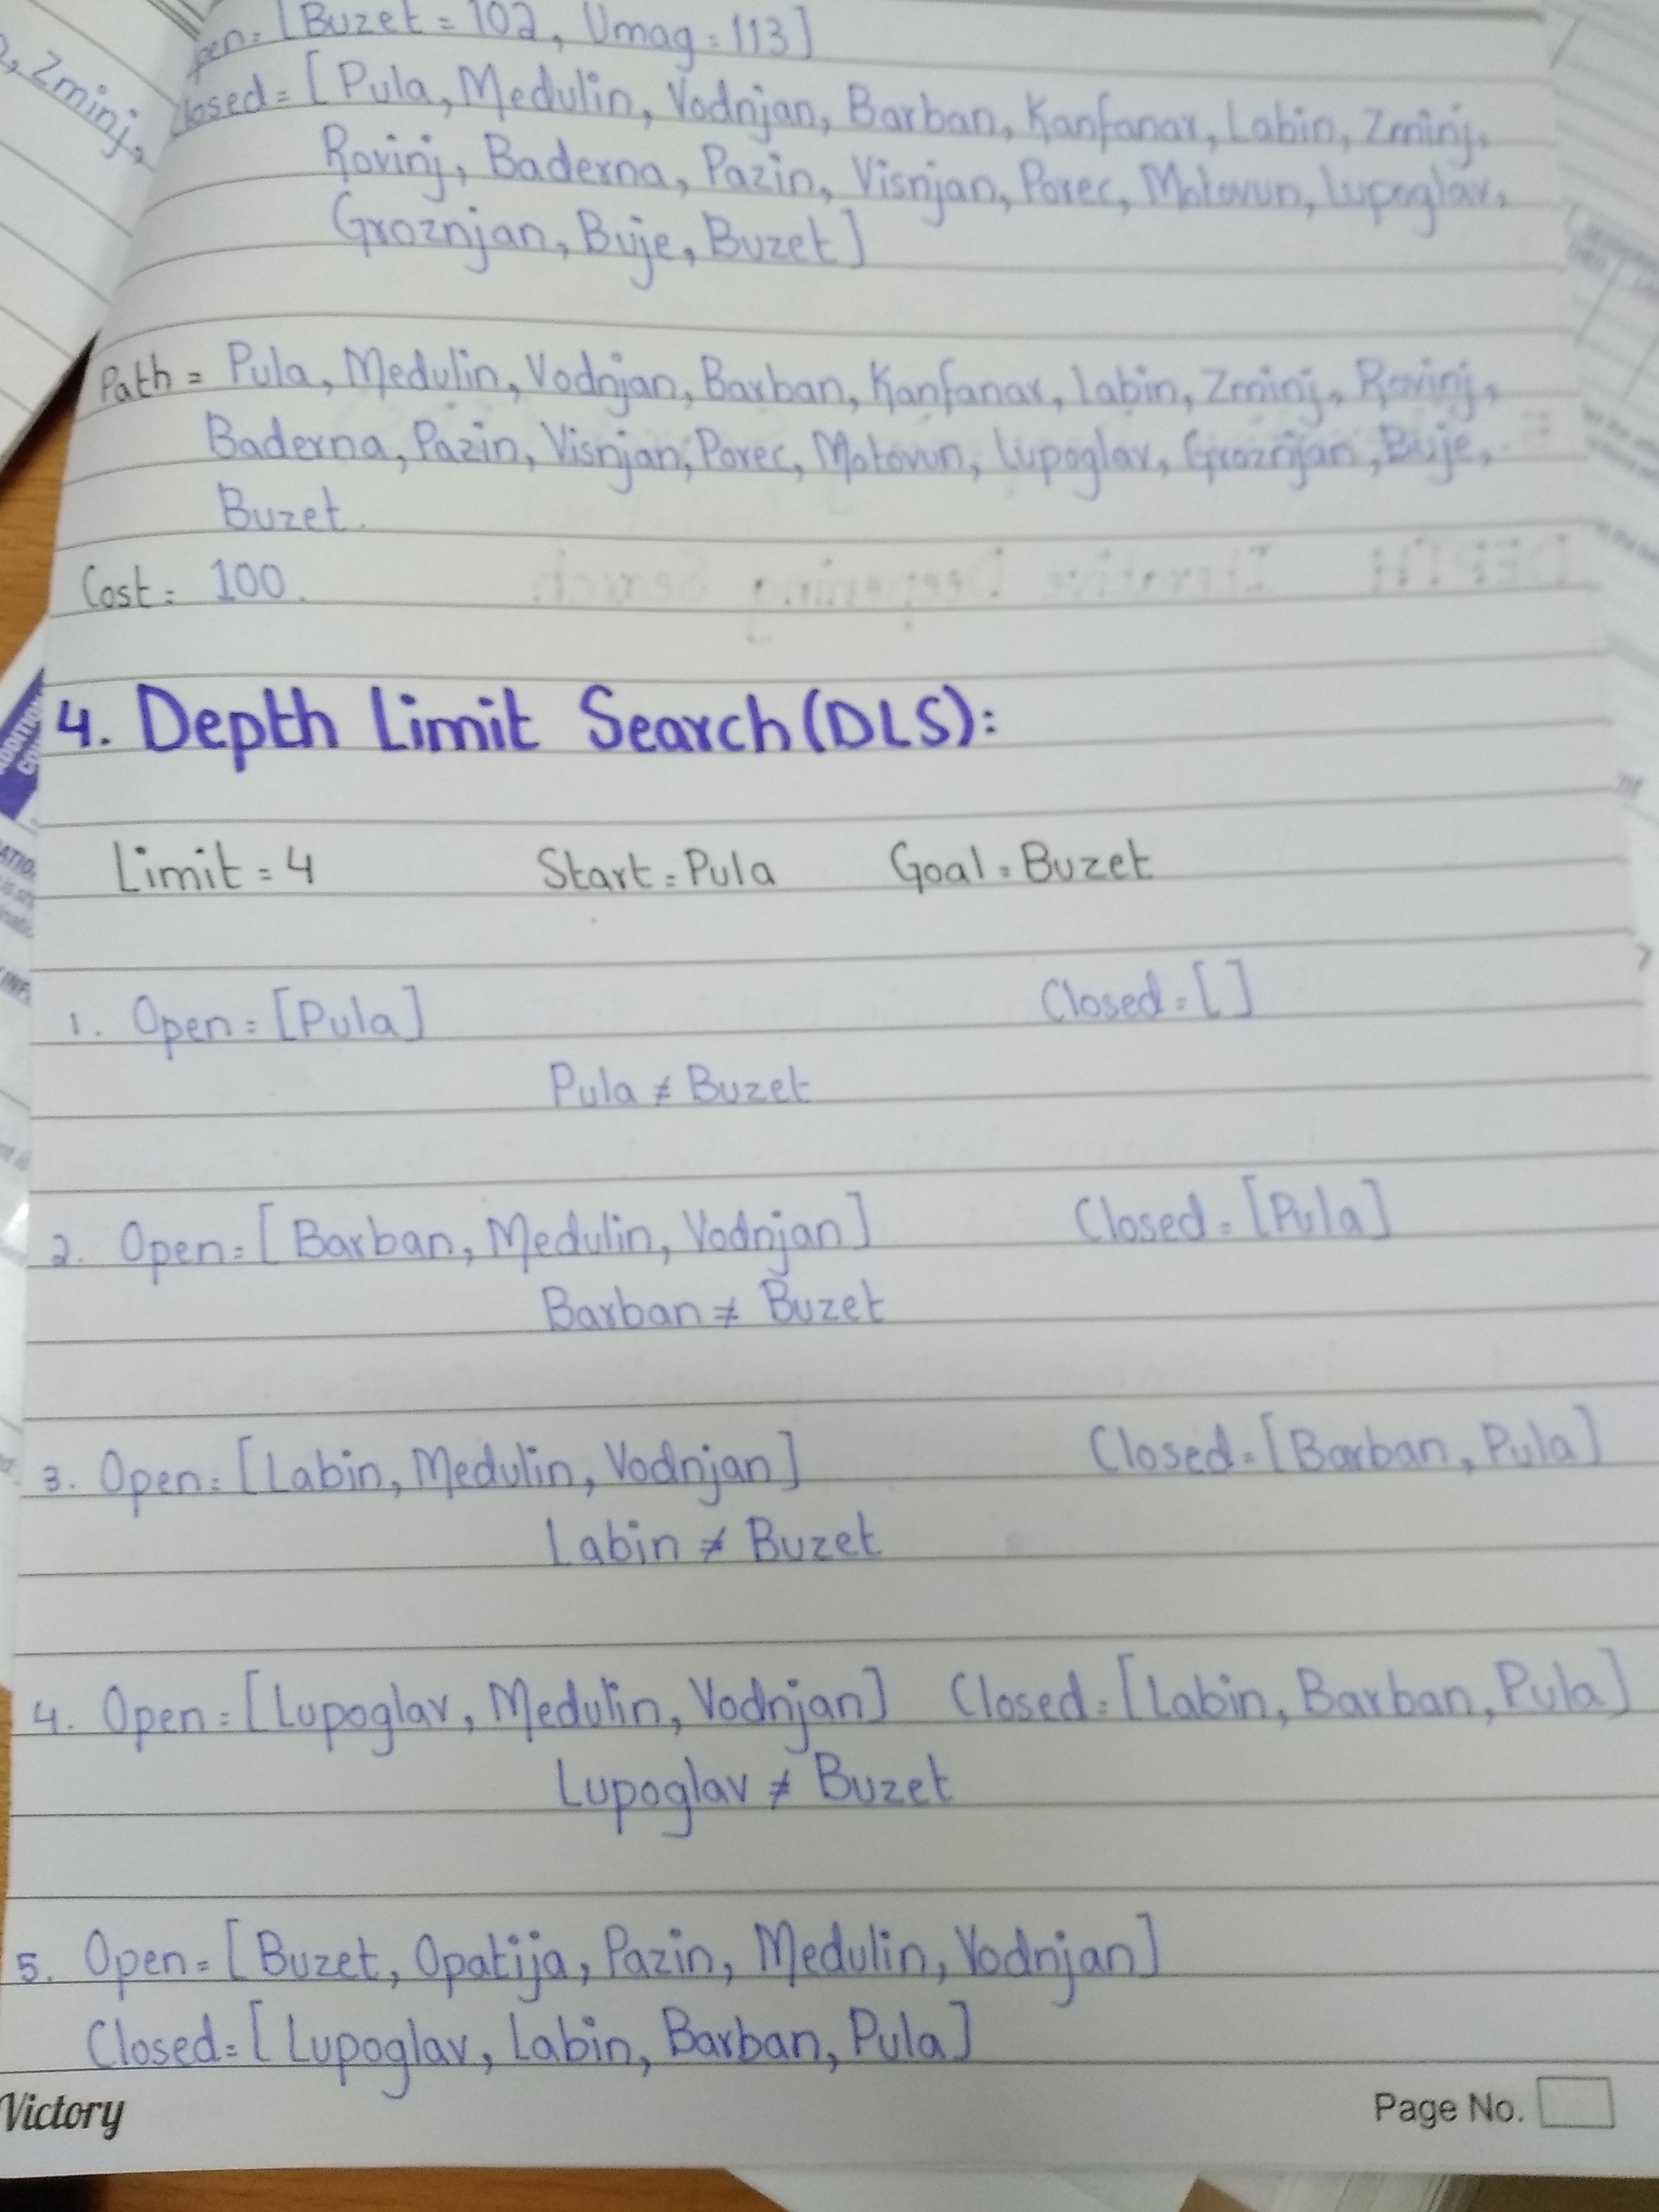 pen = [Buzet = 102, Umag = 113]
, Zminj,
losed = [Pula, Medulin, Vodnjan, Barban, Kanfanar, Labin, Zminj,
Rovinj, Baderna, Pazin, Visnjan, Porec, Motovun, Lupoglav,
Groznjan, Buje, Buzet]
Path = Pula, Medulin, Vodnjan, Barban, Kanfanar, Labin, Zminj, Rovinj,
Baderna, Pazin, Visnjan, Porec, Motovun, Lupoglav, Groznjan, Buje,
Buzet.
Cost = 100.
4. Depth Limit Search (DLS):
Limit = 4 Start = Pula Goal = Buzet
1. Open = [Pula] Closed = []
Pula ≠ Buzet
2. Open = [Barban, Medulin, Vodnjan] Closed = [Pula]
Barban ≠ Buzet
3. Open = [Labin, Medulin, Vodnjan] Closed = [Barban, Pula]
Labin ≠ Buzet
4. Open = [Lupoglav, Medulin, Vodnjan] Closed = [Labin, Barban, Pula]
Lupoglav ≠ Buzet
5. Open = [Buzet, Opatija, Pazin, Medulin, Vodnjan]
Closed = [Lupoglav, Labin, Barban, Pula]
Victory Page No.